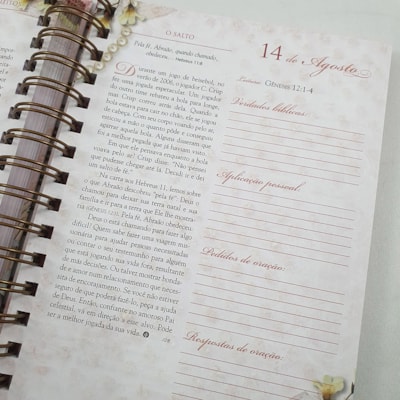 O SALTO
Pela fé, Abraão, quando chamado,
obedeceu... Hebreus 11:8
Durante um jogo de beisebol, no
verão de 2006, o jogador C. Crisp
fez uma jogada espetacular. Um jogador
do outro time rebateu a bola para longe,
mas Crisp correu atrás dela. Quando a
bola estava para cair no chão, ele se jogou
com o seu corpo vôado e pôde
agarrar aquela bola. Alguns disseram que
foi a melhor jogada que já haviam visto.
Em que ele pensava enquanto a bola
voava pelo ar? Crisp disse: "Não pensei
que pudesse chegar até lá. Decidi ir e dei
um salto de fé."
Na carta aos Hebreus 11, lemos sobre
o que Abraão descobriu: "pela fé" Deus o
chamou para deixar sua terra natal e sua
família e ir para a terra que Ele lhe mostraria
Pela fé, Abraão obedeceu.
Deus o está chamando para fazer algo
difícil? Quem sabe fazer uma viagem missionária
para ajudar pessoas necessitadas
ou contar o seu testemunho para alguém
que está jogando sua vida fora, resultante
de más decisões. Ou talvez mostrar bondade
e amor num relacionamento que necessita
de encorajamento. Se você não estiver
seguro de que poderá fazê-lo, peça a ajuda
de Deus. Então, confiante no amoroso Pai
celestial, vá em direção a esse alvo. Pode
ser a melhor jogada da sua vida.
14 de Agosto
Leitura: Gênesis 12:1-4
Verdades bíblicas:
Aplicação pessoal:
Pedidos de oração:
Respostas de oração: